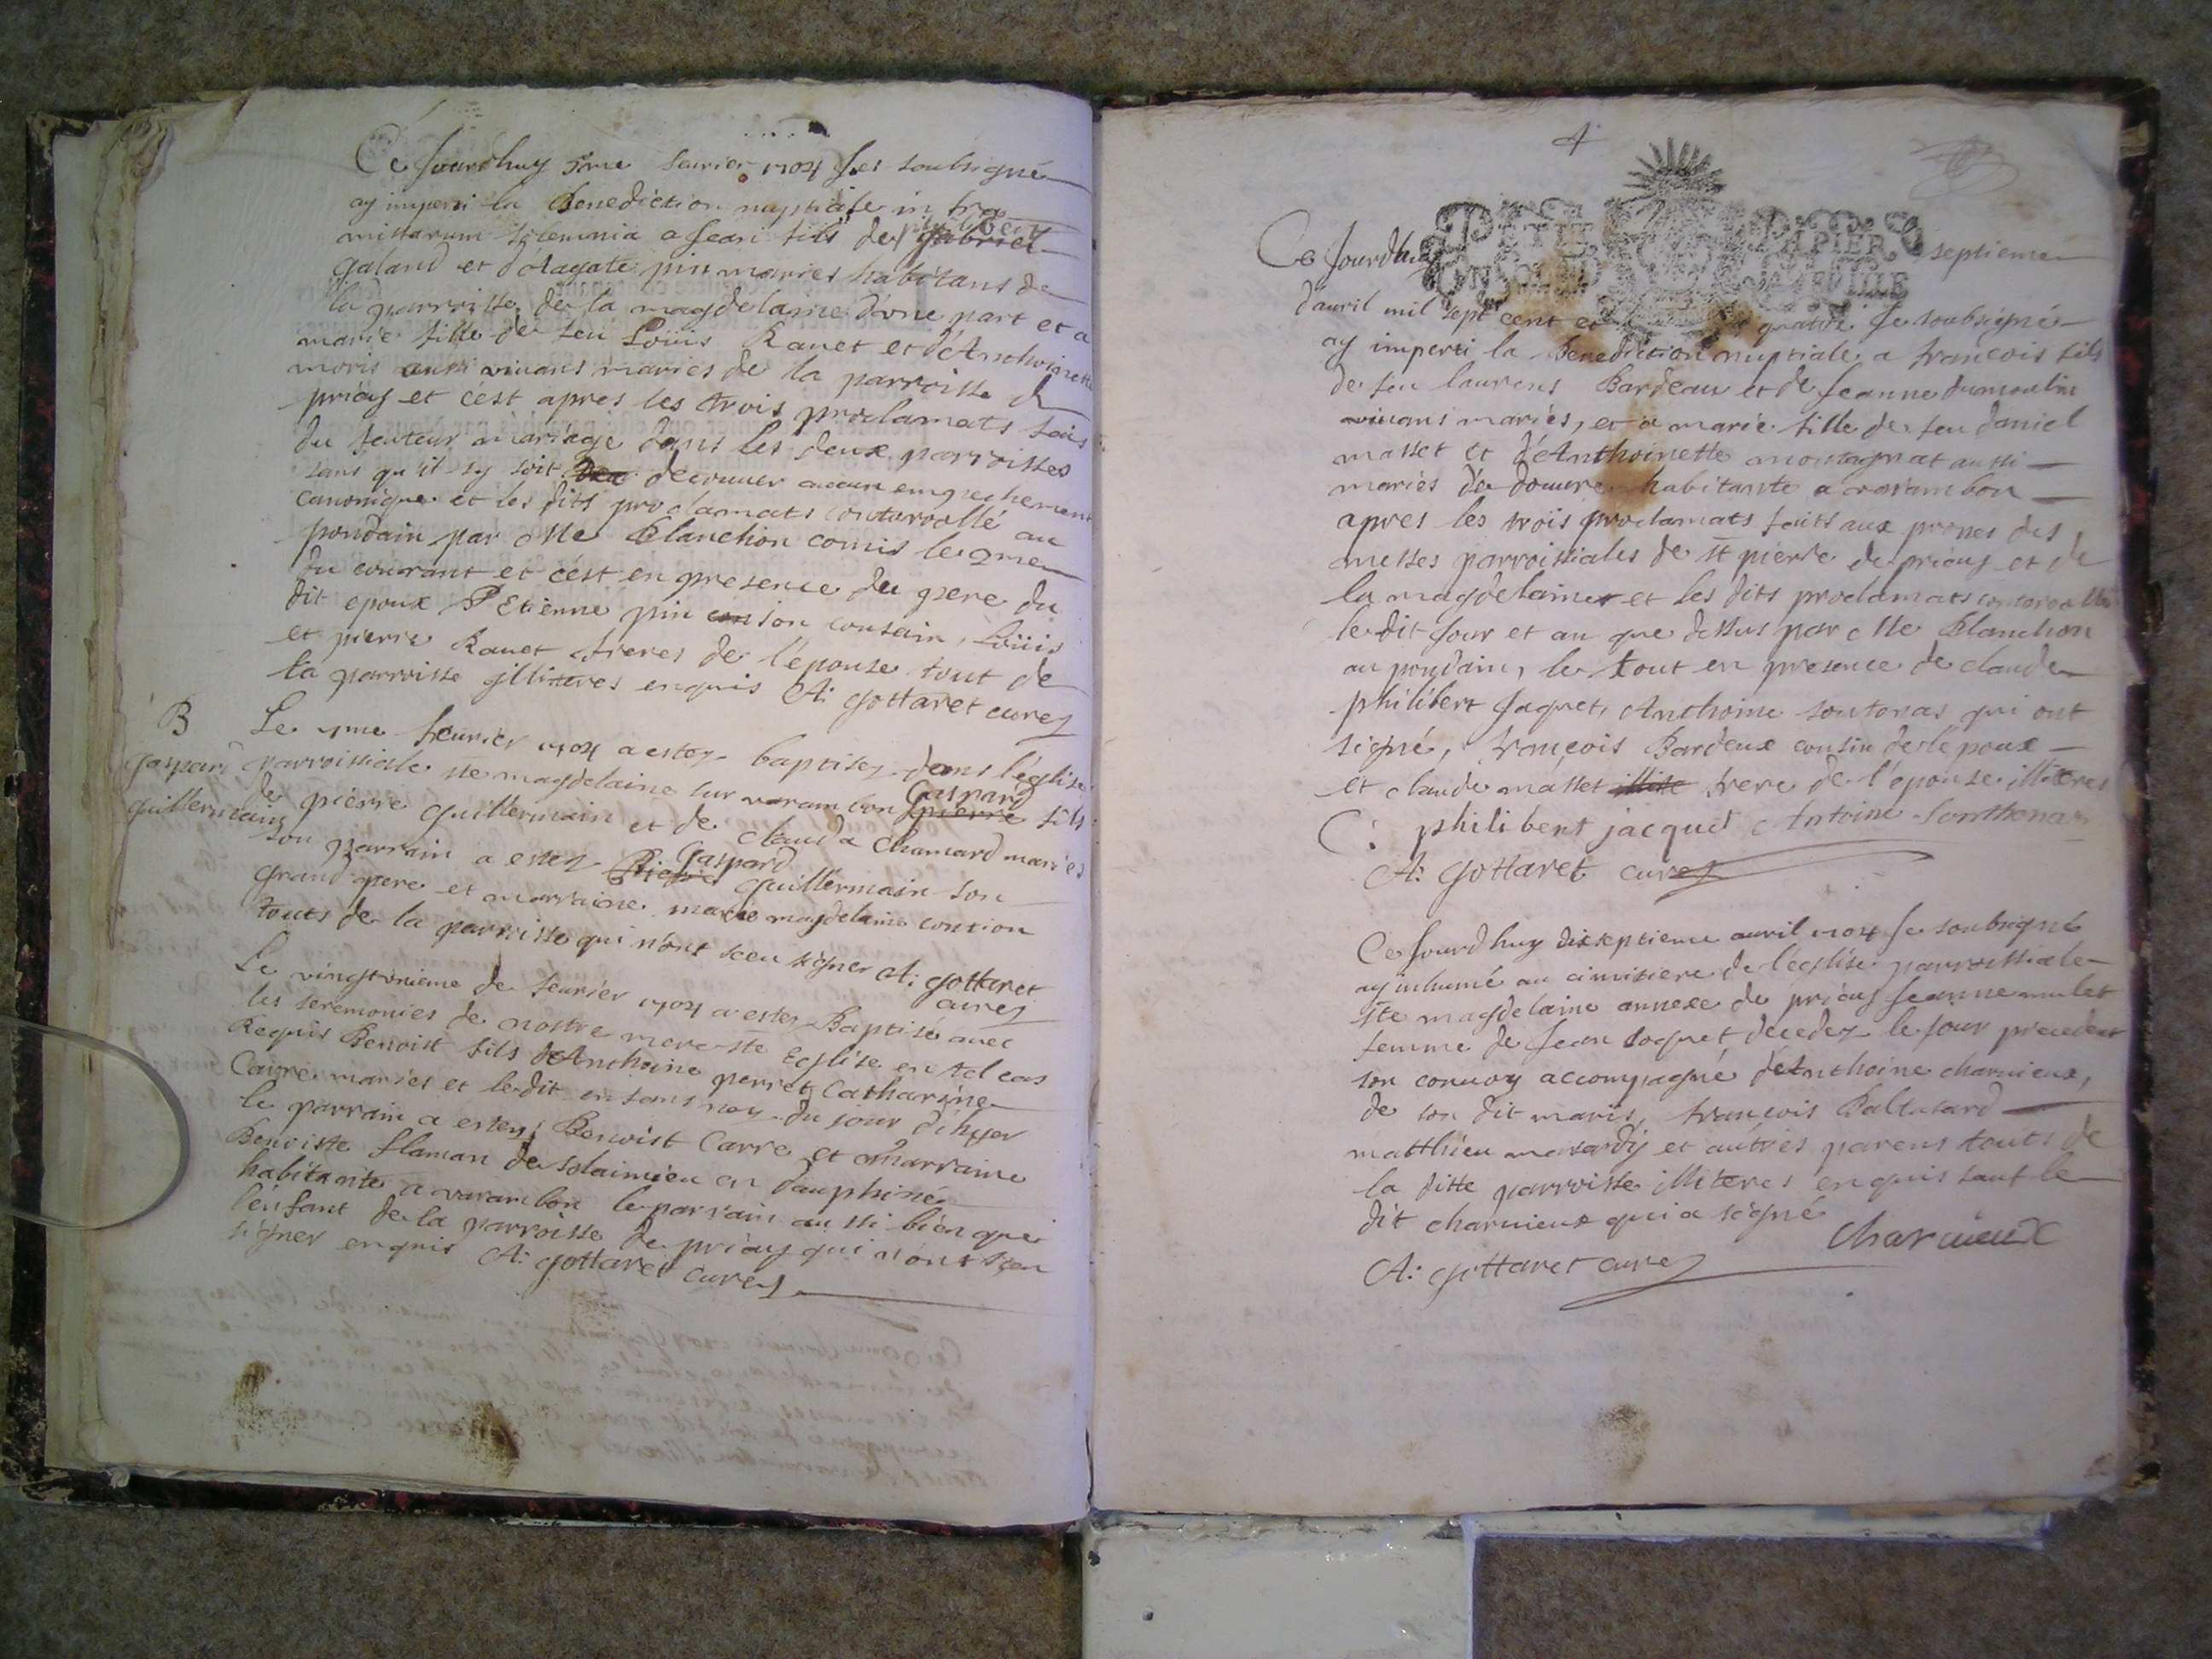 Ce Jourdhuy 5me feurier 1704 Je soubsigné
ay imperti la Benediction nuptiale in tra
missarum solemnia a Jean fils de philibert Gabriel
Galand et d'Agate pin mariés habitans de
la parroisse de la magdelaine d'une part et a
marie fille de feu Loüis Rauet et d'Anthoinette
moris aussi viuans mariés de la parroisse de
priay et c'est apres les trois proclamats fais
du futeur mariage dans les deux parroisses
sans qu'il sy soit decouuer aucun empechement
canonique et les dits proclamats controollé au
pondain par Me Blanchon comis le 2me
du courant et c'est en presence du pere du
dit epoux Etienne pin son cousain, Loüis
et pierre Rauet freres de l'epouse tout de
la parroisse illiteres enquis A: Gottaret curez
B Le 7me feurier 1704 a estez baptisez dans l'église
gaspard parroissiale ste magdelaine sur varambon Gaspard pierre fils
guillermain de pierre Guillermain et de Clauda Chamard mariés
son parrain a estez Gaspard Pierre guillermain son
grand pere et marraine marie magdelaine contion
touts de la parroisse qui n'ont sceu signer A: Gottaret
curez
Le vingtunieme de feurier 1704 a estez Baptisé auec
les seremonies de nostre mere ste Eglise en tel cas
Requis Benoist fils d'Anthoine perret Catharine
Carre mariés et ledit enfans nay du jour d'hyer
le parrain a estez Benoist Carre et Marraine
Benoiste flaman de Solaimieu en dauphiné
habitante a varambon le parrain aussi bien que
l'enfant de la parroisse de priay qui n'ont sceu
signer enquis A: Gottaret curez
4
Ce Jourdhuy septieme
PAPIER
d'auril mil sept cent et quatre Je soubsigné
ay imperti la Benediction nuptiale a françois fils
de feu laurens Bardeau et de Jeanne dumoulin
viuans mariés, et a marie fille de feu daniel
masset et d'Anthoinette montagnat aussi
mariés de douure habitante a varambon
apres les trois proclamats faits aux prones des
messes parroissiales de st pierre de priay et de
la magdelaine et les dits proclamats controollés
le dit Jour et an que dessus par Me Blanchon
au pondain, le tout en presence de claude
philibert Jaquet, Anthoine soutonas qui ont
signé, françois Bardeux cousin de l'epoux
et claude masset frere de l'epouse illiteres
C: philibert jacquet Antoine Sonthonas
A: Gottaret curez
Ce Jourdhuy dixseptieme auril 1704 Je soubsigné
ay inhumé au cimitiere de l'eglise parroissiale
ste magdelaine annexe de priay Jeanne mulet
femme de Jean Joquet decedez le jour precedent
son conuoy accompagné d'Anthoine charuieux,
de son dit maris, françois Baltasard
matthieu et autres parens touts de
la ditte parroisse illiteres enquis sauf le
dit charuieux qui a signé
Charuieux
A: Gottaret curez